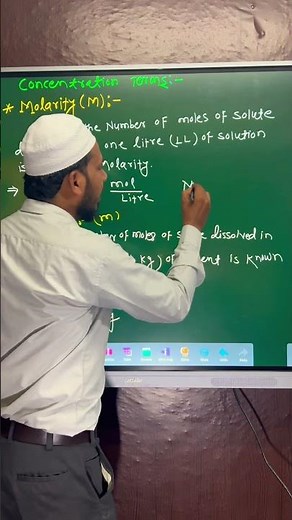 Concentration Terms:-
* Molarity (M):-
the Number of moles of solute
one litre (1L) of solution
molarity.
⇒ mol
Litre
(m)
of moles of dissolved in
kg) of is known